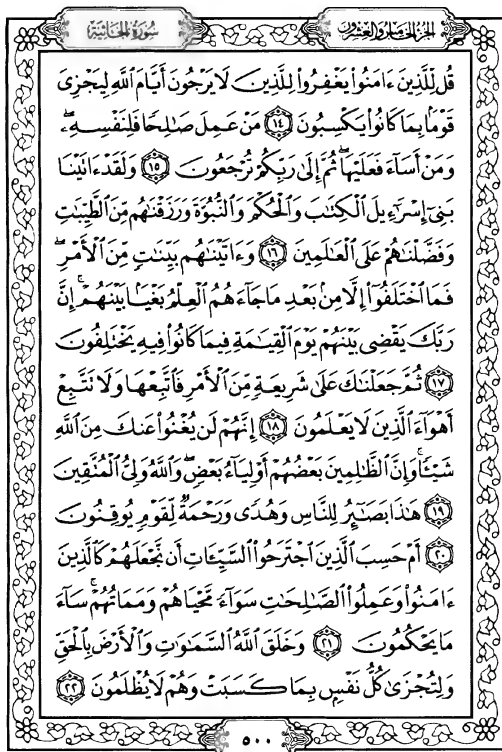 الجزء الخامس والعشرون
سورة الجاثية
قُل لِّلَّذِينَ ءَامَنُوا۟ يَغْفِرُوا۟ لِلَّذِينَ لَا يَرْجُونَ أَيَّامَ ٱللَّهِ لِيَجْزِىَ
قَوْمًۢا بِمَا كَانُوا۟ يَكْسِبُونَ ١٤ مَنْ عَمِلَ صَـٰلِحًا فَلِنَفْسِهِۦ ۖ
وَمَنْ أَسَآءَ فَعَلَيْهَا ۖ ثُمَّ إِلَىٰ رَبِّكُمْ تُرْجَعُونَ ١٥ وَلَقَدْ ءَاتَيْنَا
بَنِىٓ إِسْرَٰٓءِيلَ ٱلْكِتَـٰبَ وَٱلْحُكْمَ وَٱلنُّبُوَّةَ وَرَزَقْنَـٰهُم مِّنَ ٱلطَّيِّبَـٰتِ
وَفَضَّلْنَـٰهُمْ عَلَى ٱلْعَـٰلَمِينَ ١٦ وَءَاتَيْنَـٰهُم بَيِّنَـٰتٍ مِّنَ ٱلْأَمْرِ ۖ
فَمَا ٱخْتَلَفُوٓا۟ إِلَّا مِنۢ بَعْدِ مَا جَآءَهُمُ ٱلْعِلْمُ بَغْيًۢا بَيْنَهُمْ ۚ إِنَّ
رَبَّكَ يَقْضِى بَيْنَهُمْ يَوْمَ ٱلْقِيَـٰمَةِ فِيمَا كَانُوا۟ فِيهِ يَخْتَلِفُونَ
١٧ ثُمَّ جَعَلْنَـٰكَ عَلَىٰ شَرِيعَةٍ مِّنَ ٱلْأَمْرِ فَٱتَّبِعْهَا وَلَا تَتَّبِعْ
أَهْوَآءَ ٱلَّذِينَ لَا يَعْلَمُونَ ١٨ إِنَّهُمْ لَن يُغْنُوا۟ عَنكَ مِنَ ٱللَّهِ
شَيْـًٔا ۚ وَإِنَّ ٱلظَّـٰلِمِينَ بَعْضُهُمْ أَوْلِيَآءُ بَعْضٍ ۖ وَٱللَّهُ وَلِىُّ ٱلْمُتَّقِينَ
١٩ هَـٰذَا بَصَـٰٓئِرُ لِلنَّاسِ وَهُدًى وَرَحْمَةٌ لِّقَوْمٍ يُوقِنُونَ
٢٠ أَمْ حَسِبَ ٱلَّذِينَ ٱجْتَرَحُوا۟ ٱلسَّيِّـَٔاتِ أَن نَّجْعَلَهُمْ كَٱلَّذِينَ
ءَامَنُوا۟ وَعَمِلُوا۟ ٱلصَّـٰلِحَـٰتِ سَوَآءً مَّحْيَاهُمْ وَمَمَاتُهُمْ ۚ سَآءَ
مَا يَحْكُمُونَ ٢١ وَخَلَقَ ٱللَّهُ ٱلسَّمَـٰوَٰتِ وَٱلْأَرْضَ بِٱلْحَقِّ
وَلِتُجْزَىٰ كُلُّ نَفْسٍۭ بِمَا كَسَبَتْ وَهُمْ لَا يُظْلَمُونَ ٢٢
٥٠٠